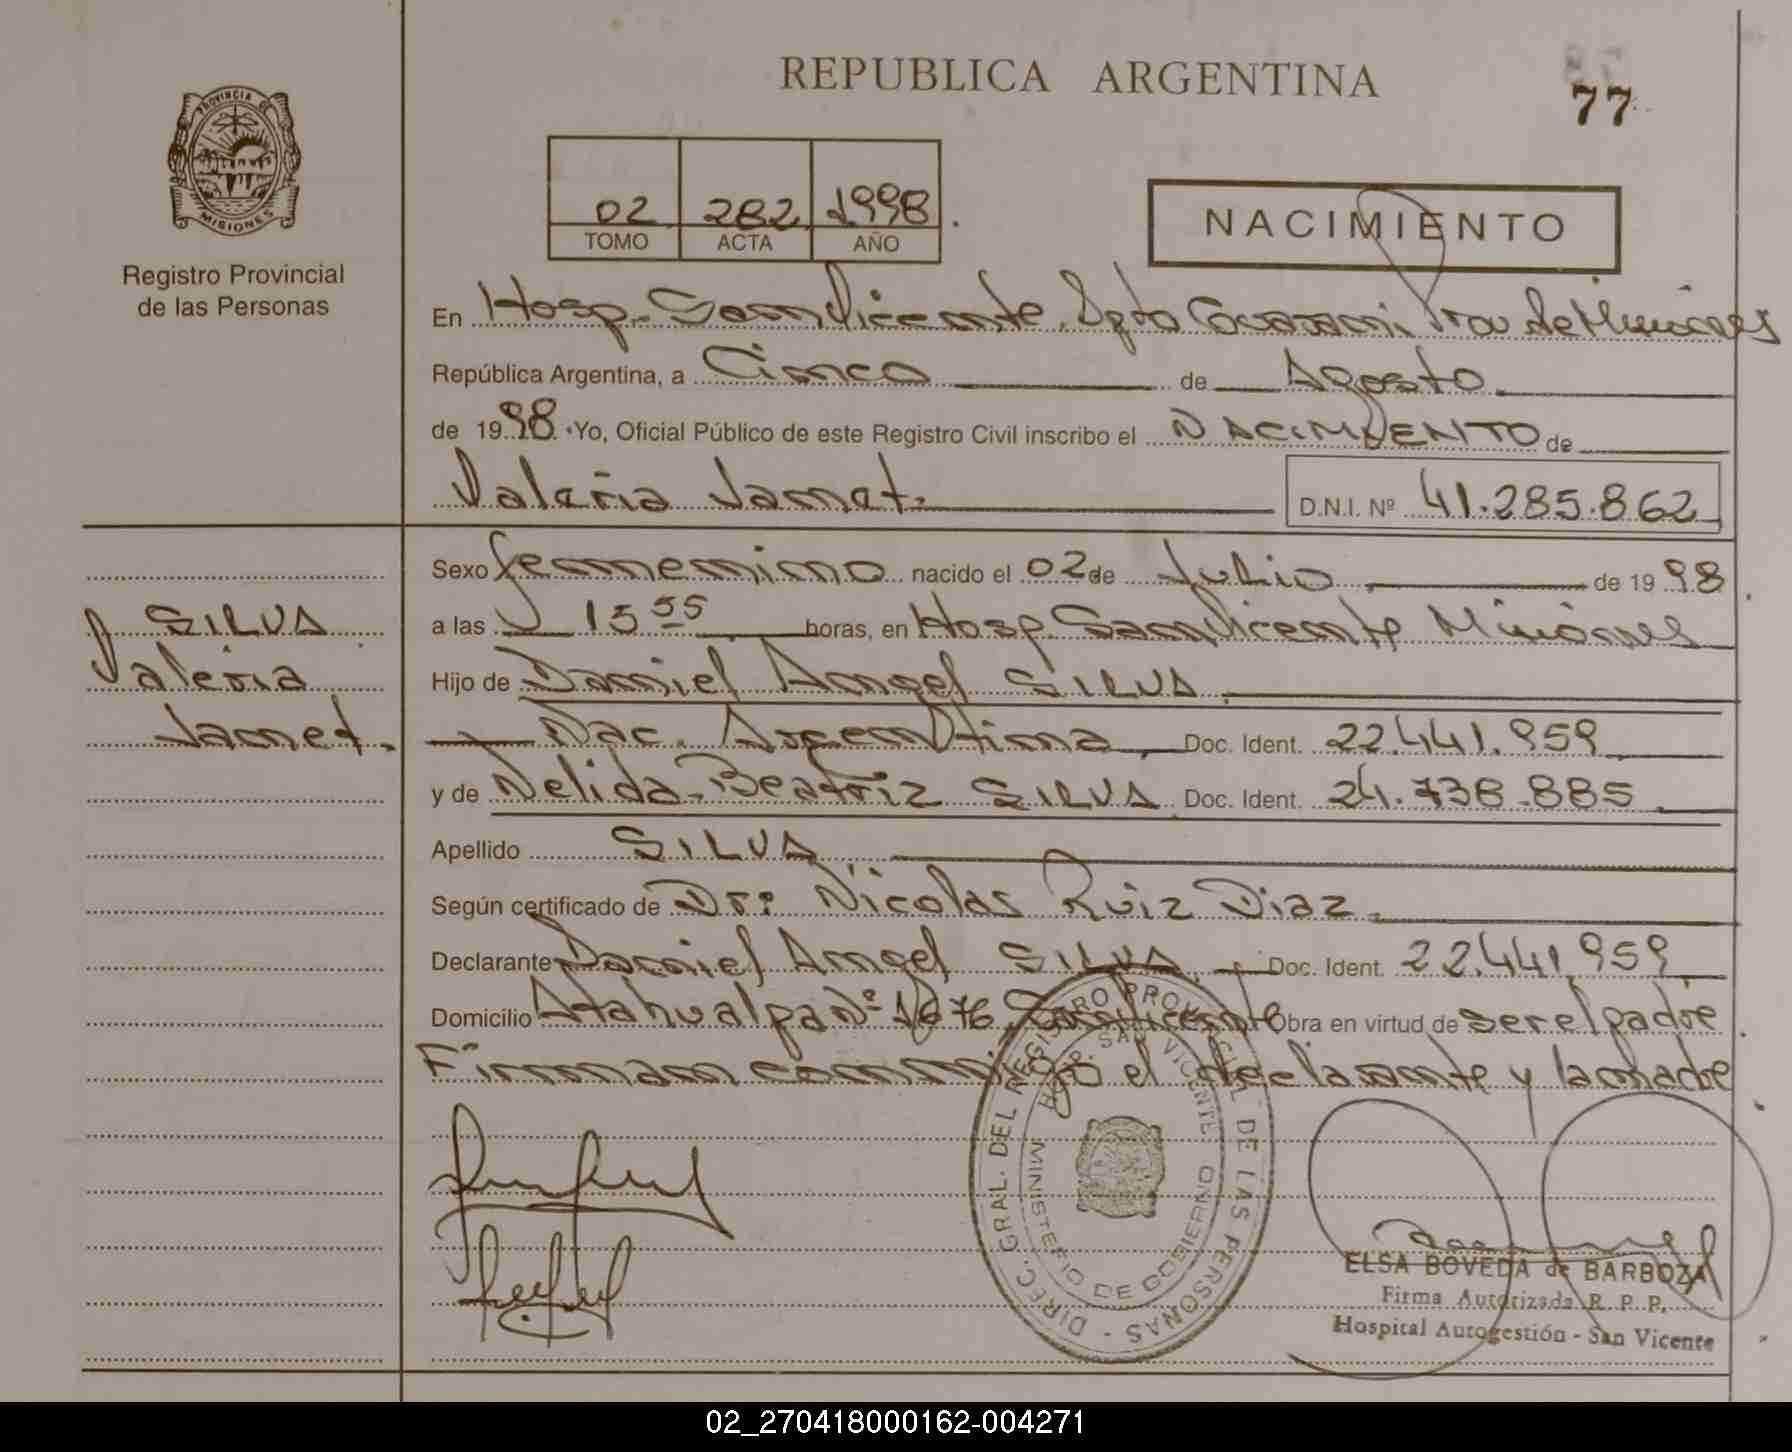 REPUBLICA ARGENTINA
77
PROVINCIA DE
MISIONES
Registro Provincial
de las Personas
02 282 1998
TOMO ACTA AÑO
NACIMIENTO
En Hosp. San Vicente, Dpto Guarani, Prov de Misiones
República Argentina, a Cinco de Agosto
de 1998. Yo, Oficial Público de este Registro Civil inscribo el NACIMIENTO de
Valeria Janet.
D.N.I. Nº 41.285.862
Sexo femenino nacido el 02 de Julio de 1998
a las 15 55 horas, en Hosp. San Vicente Misiones
Hijo de Daniel Angel SILVA
Nac. Argentina, Doc. Ident. 22.441.959
y de Nelida Beatriz SILVA Doc. Ident. 24.738.885
Apellido SILVA
Según certificado de Dr: Nicolas Ruiz Diaz.
Declarante Daniel Angel SILVA, Doc. Ident. 22.441.959
Domicilio Atahualpa Nº 1676, San Vicente Obra en virtud de ser el padre
Firman conmigo el declarante y la madre
SILVA
Valeria
Janet.
DIREC. GRAL. DEL REGISTRO PROVINCIAL DE LAS PERSONAS -
HOSP. SAN VICENTE
MINISTERIO DE GOBIERNO
ELSA BOVEDA de BARBOZA
Firma Autorizada R. P. P.
Hospital Autogestión - San Vicente
02_270418000162-004271